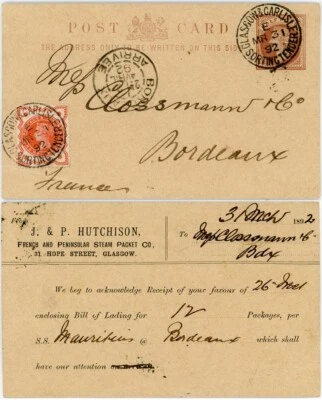 POST CARD
THE ADDRESS ONLY TO BE WRITTEN ON THIS SIDE
GLASGOW & CARLISLE
MR 31
92
SORTING TENDER
ARRIVEE
92
Clossmann & Co
Bordeaux
France
GLASGOW & CARLISLE
92
SORTING TENDER
J. & P. HUTCHISON,
FRENCH AND PENINSULAR STEAM PACKET CO,
21 HOPE STREET, GLASGOW.
31 March 1892
To Clossmann & C
Bdx
We beg to acknowledge Receipt of your favour of 26
enclosing Bill of Lading for 12 Packages, per
S.S. Mauritius @ Bordeaux which shall
have our attention